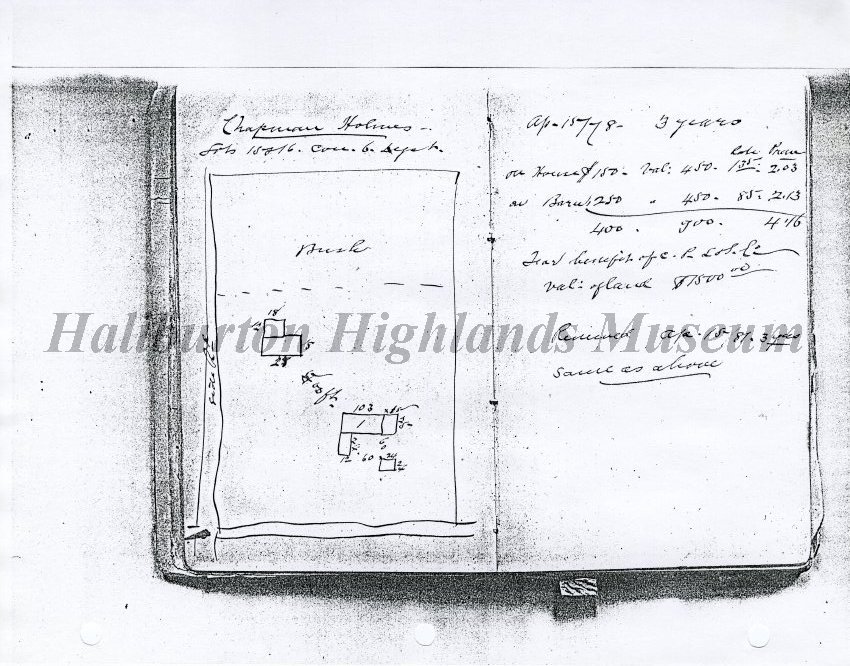 Chapman Holmes -
Lots 15 & 16. Con. 6.
Bush
18
28
ft.
103
12
60
24
Ap - 15/78 - 3 years
Rate Prem
on House $150 - Val: 450 - 1.35 - 2.03
on Barns 250 " 450 - 85 - 2.13
400 - 900 - 4.16
For benefit of C. P. L & S. Co
val: of land $1500 00
Renewed Apr 15 - 81 - 3 yrs
same as above
Haliburton Highlands Museum